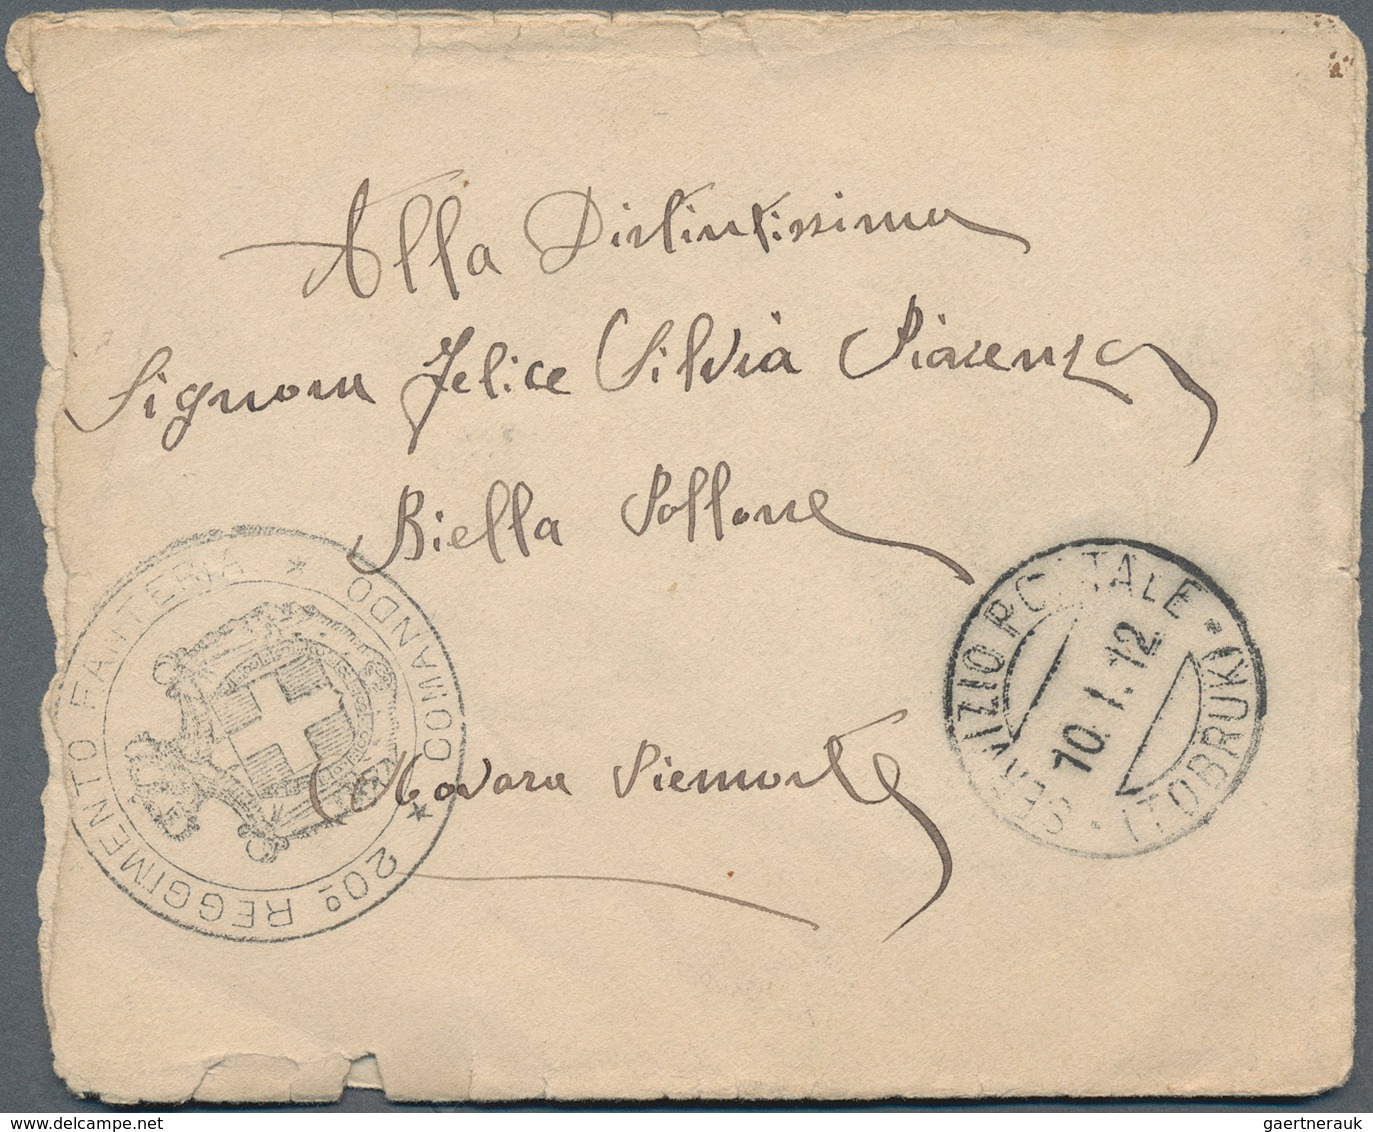 Alla Distintissima
Signora Felice Silvia Piacenza
Biella Pollone
Novara Piemonte
COMANDO * 20º REGGIMENTO FANTERIA *
SERVIZIO POSTALE
10.1.12
(TOBRUK)
gaertnerauk
delcampe.net